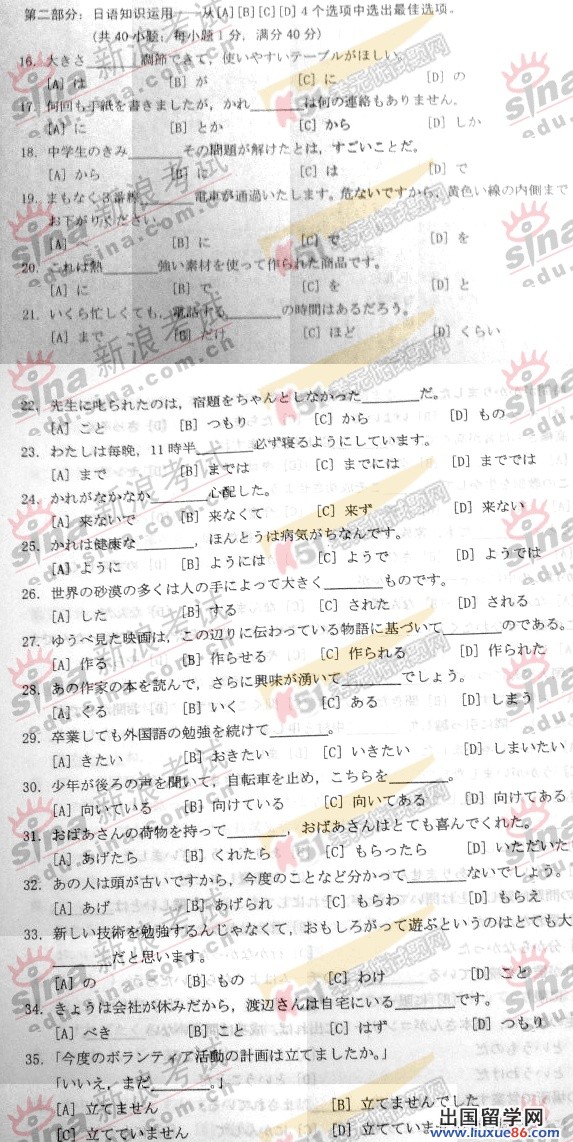 第二部分：日语知识运用——从[A][B][C][D] 4个选项中选出最佳选项。
（共40小题；每小题1分，满分40分）
16．大きさ______調節できて，使いやすいテーブルがほしい。
[A] は [B] が [C] に [D] の
17．何回も手紙を書きましたが，かれ______は何の連絡もありません。
[A] に [B] とか [C] から [D] しか
18．中学生のきみ______その問題が解けたとは，すごいことだ。
[A] から [B] に [C] は [D] で
19．まもなく3番線______電車が通過いたします。危ないですから，黄色い線の内側まで
お下がりください。
[A] へ [B] に [C] で [D] を
20．これは熱______強い素材を使って作られた商品です。
[A] に [B] で [C] の [D] と
21．いくら忙しくても，電話する______の時間はあるだろう。
[A] まで [B] だけ [C] ほど [D] くらい
22．先生に叱られたのは，宿題をちゃんとしなかった______だ。
[A] こと [B] つもり [C] から [D] もの
23．わたしは毎晩，11時半______必ず寝るようにしています。
[A] まで [B] までは [C] までには [D] まででは
24．かれがなかなか______心配した。
[A] 来ないで [B] 来なくて [C] 来ず [D] 来ない
25．かれは健康な______，ほんとうは病気がちなんです。
[A] ように [B] ようには [C] ようで [D] ようでは
26．世界の砂漠の多くは人の手によって大きく______ものです。
[A] した [B] する [C] された [D] される
27．ゆうべ見た映画は，この辺りに伝わっている物語に基づいて______のである。
[A] 作る [B] 作らせる [C] 作られる [D] 作られた
28．あの作家の本を読んで，さらに興味が湧いて______でしょう。
[A] くる [B] いく [C] ある [D] しまう
29．卒業しても外国語の勉強を続けて______。
[A] きたい [B] おきたい [C] いきたい [D] しまいたい
30．少年が後ろの声を聞いて，自転車を止め，こちらを______。
[A] 向いている [B] 向けている [C] 向いてある [D] 向けてある
31．おばあさんの荷物を持って______，おばあさんはとても喜んでくれた。
[A] あげたら [B] くれたら [C] もらったら [D] いただいた
32．あの人は頭が古いですから，今度のことなど分かって______ないでしょう。
[A] あげ [B] あげられ [C] もらわ [D] もらえ
33．新しい技術を勉強するんじゃなくて，おもしろがって遊ぶというのはとても大
______だと思います。
[A] の [B] もの [C] わけ [D] こと
34．きょうは会社が休みだから，渡辺さんは自宅にいる______です。
[A] べき [B] こと [C] はず [D] つもり
35．「今度のボランティア活動の計画は立てましたか。」
「いいえ，まだ______。」
[A] 立てません [B] 立てませんでした
[C] 立てていません [D] 立てていません
出国留学网
www.liuxue86.com